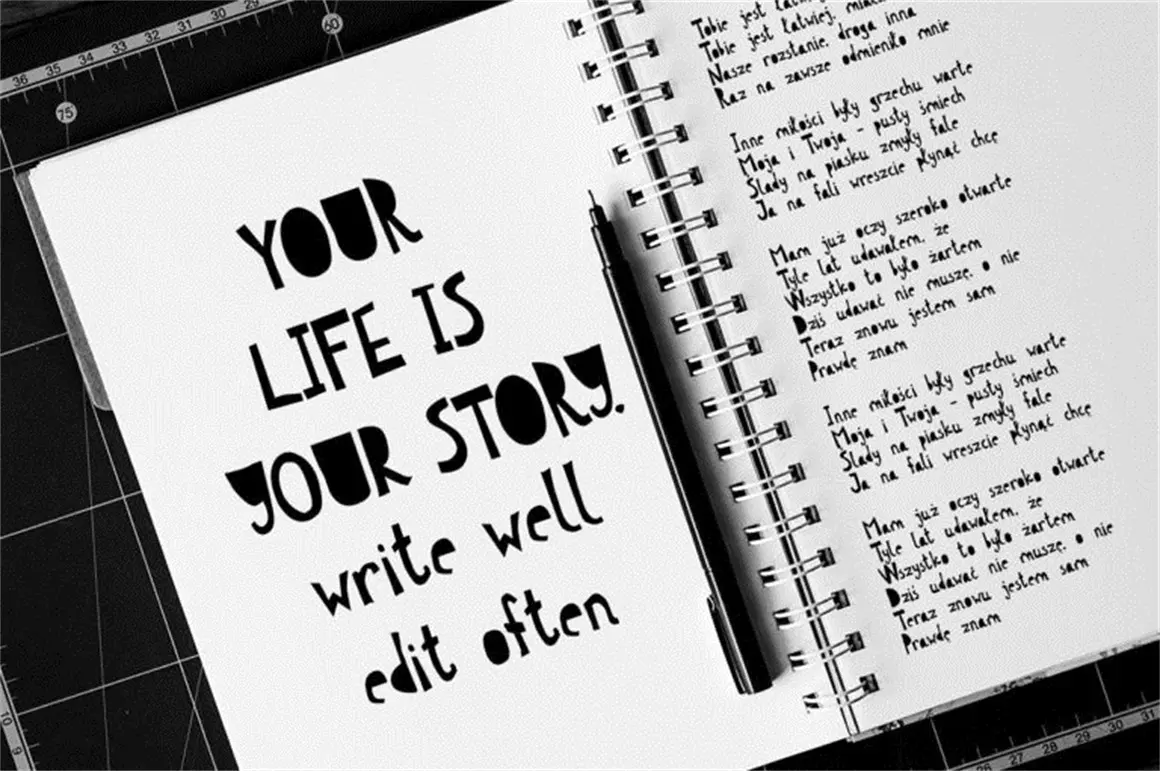 36 35 34 33 32 31 30 29
60
75
YOUR
LIFE IS
YOUR STORY.
write well
edit often
Tobie jest
Tobie jest łatwiej,
Nasze rozstanie, droga inna
Raz na zawsze odmieniło mnie
Inne miłości były grzechu warte
Moja i Twoja - pusty śmiech
Ślady na piasku zmyły fale
Ja na fali wreszcie płynąć chcę
Mam już oczy szeroko otwarte
Tyle lat udawałem, że
Wszystko to było żartem
Dziś udawać nie muszę, o nie
Teraz znowu jestem sam
Prawdę znam
Inne miłości były grzechu warte
Moja i Twoja - pusty śmiech
Ślady na piasku zmyły fale
Ja na fali wreszcie płynąć chcę
Mam już oczy szeroko otwarte
Tyle lat udawałem, że
Wszystko to było żartem
Dziś udawać nie muszę, o nie
Teraz znowu jestem sam
Prawdę znam
10
9
26 27 28 29 30 31